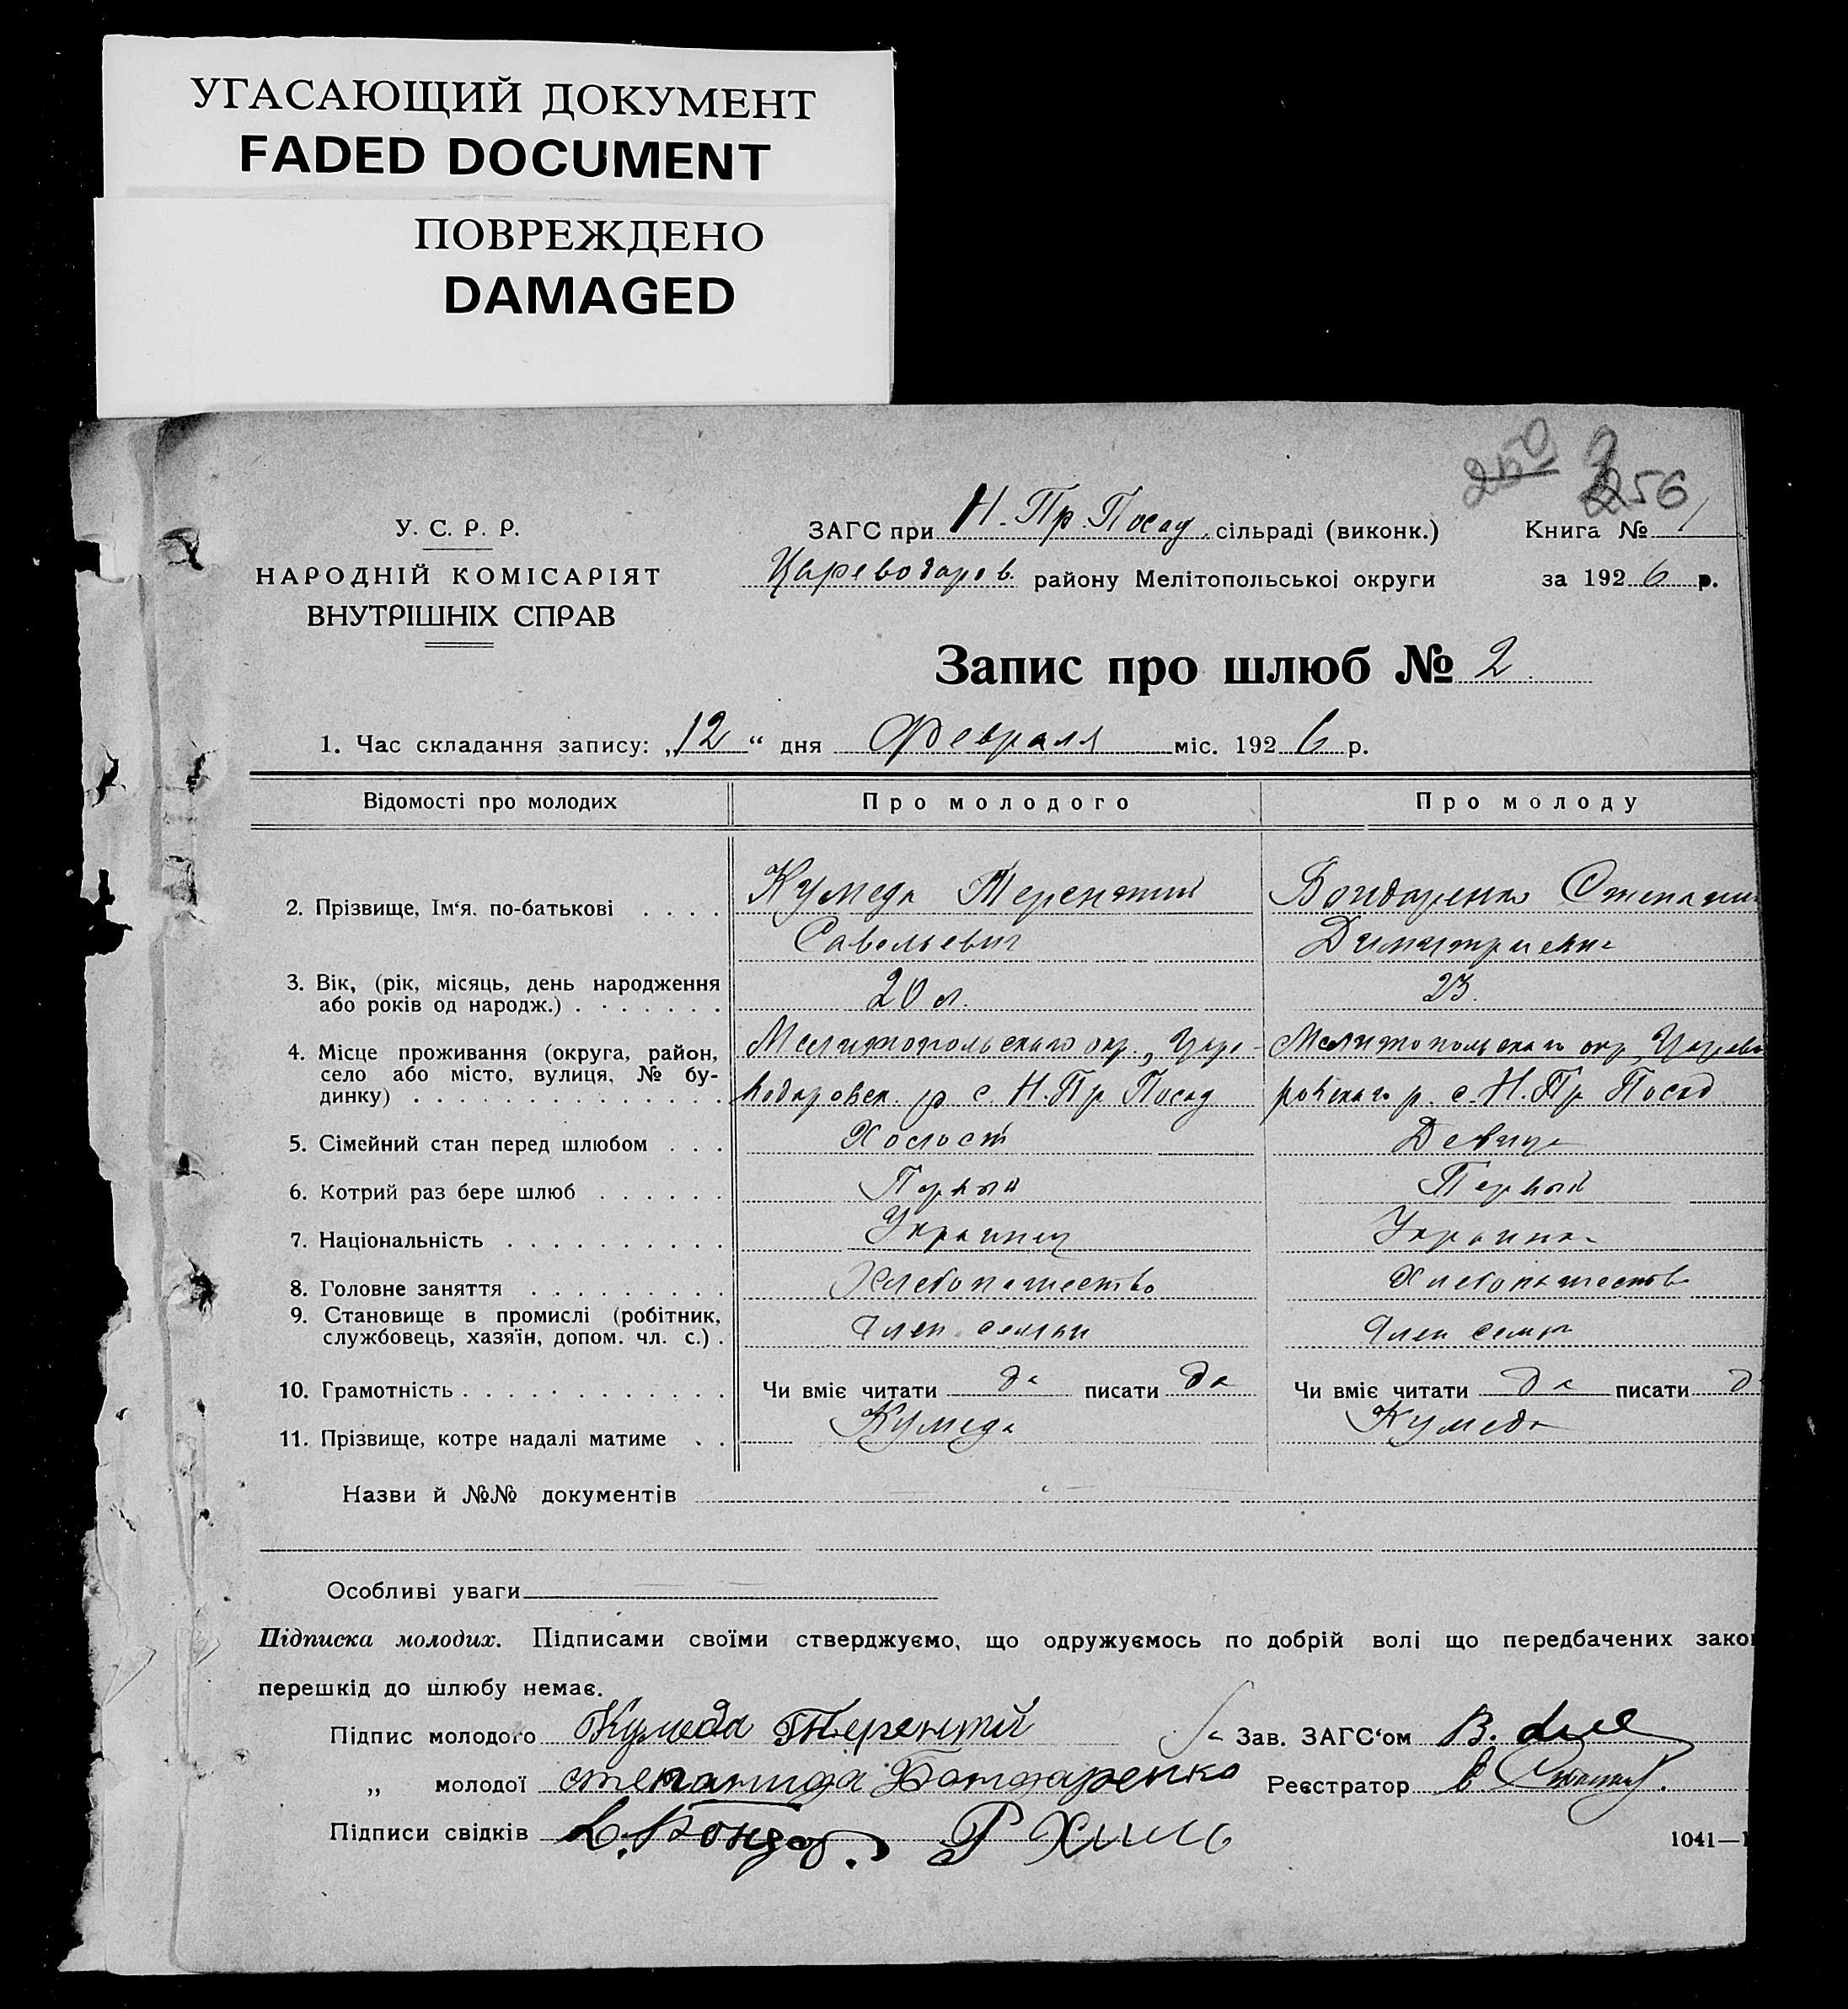 УГАСАЮЩИЙ ДОКУМЕНТ
FADED DOCUMENT
ПОВРЕЖДЕНО
DAMAGED
250 256
У. С. Р. Р.
НАРОДНІЙ КОМІСАРІЯТ
ВНУТРІШНІХ СПРАВ
ЗАГС при Н. Пр. Посад. сільраді (виконк.) Книга № 1
Цареводаров. району Мелітопольської округи за 1926 р.
Запис про шлюб № 2
1. Час складання запису: „12“ дня Февраля міс. 1926 р.
Відомості про молодих Про молодого Про молоду
2. Прізвище, Ім'я. по-батькові . . . . Кумеда Терентий Бондаренко Степани
Савельевич Димитриевна
3. Вік, (рік, місяць, день народження
або років од народж.) . . . . . . . 20 л. 23.
4. Місце проживання (округа, район, Мелитопольскаго окр., Царе- Мелитопольскаго окр., Царево
село або місто, вулиця, № бу-
динку) . . . . . . . . . . . . . . водаровск. р. с. Н. Пр Посад ровскаго р. с. Н. Пр Посад
5. Сімейний стан перед шлюбом . . . Холост Девица
6. Котрий раз бере шлюб . . . . . . Первый Первый
7. Національність . . . . . . . . . . Украинец Украинка
8. Головне заняття . . . . . . . . . Хлебопашество Хлебопашество
9. Становище в промислі (робітник,
службовець, хазяїн, допом. чл. с.) . Член семьи Член семьи
10. Грамотність . . . . . . . . . . . . Чи вміє читати да писати да Чи вміє читати да писати д
11. Прізвище, котре надалі матиме . . Кумеда Кумеда
Назви й №№ документів
Особливі уваги
Підписка молодих. Підписами своїми стверджуємо, що одружуємось по добрій волі що передбачених зако
перешкід до шлюбу немає.
Підпис молодого Кумеда Терентий Зав. ЗАГС'ом В.
„ молодої степанида Бондаренко Реєстратор
Підписи свідків Бондар. Р Хиль
1041—